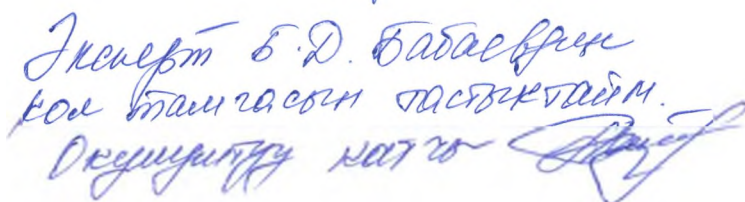 Эксперт Б.Д. Бабаевдин
кол тамгасын тастыктайм.
Окумуштуу катчы